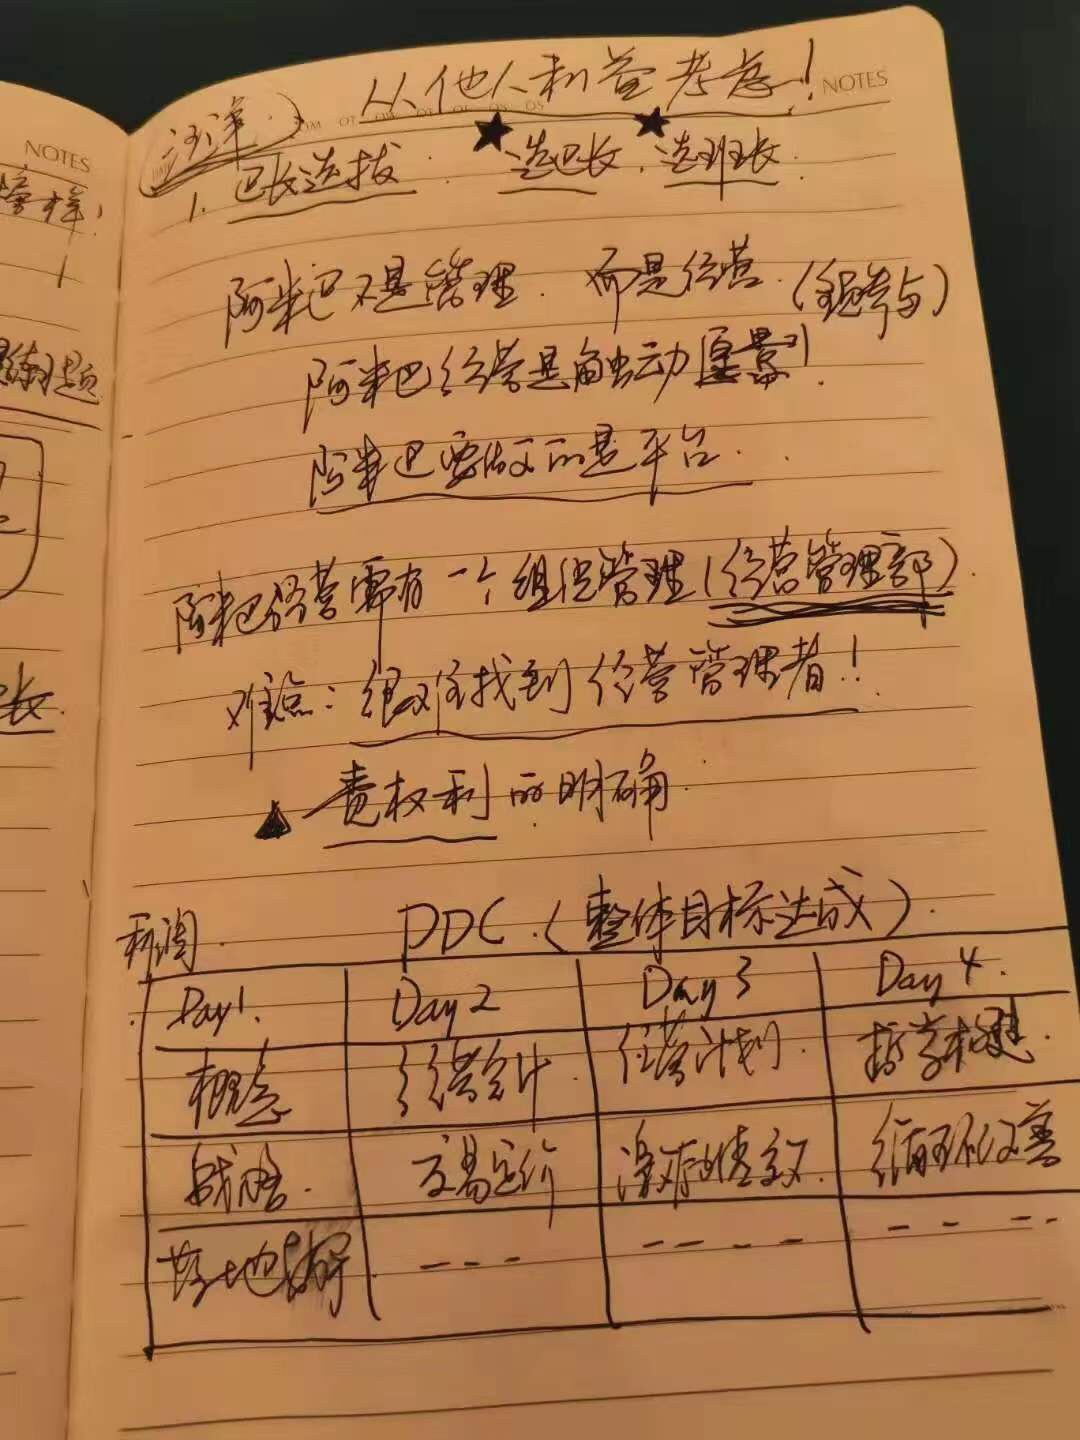 NOTES
从他人利益考虑！
NOTES
1. 巴长选拔 ★选巴长、★选班长
阿米巴不是管理、而是经营.(全员参与)
阿米巴经营是触动愿景!
阿米巴要做的是平台.
阿米巴经营需有一个组织管理(经营管理部).
难点：很难找到经营管理者！
▲责权利的明确.
PDC.(整体目标达成).
Day1. Day 2 Day 3 Day 4.
概念 经营会计. 经营计划. 哲学
战略. 交易定价 激励 循环改善
落地 --- ---- -- --